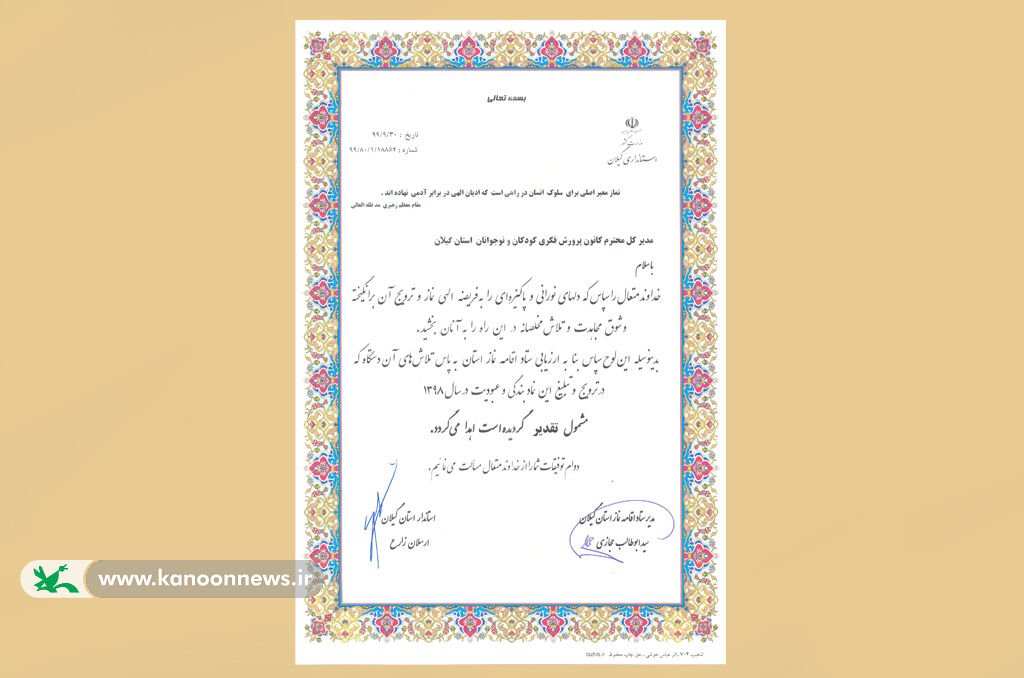 بسمه تعالی
وزارت کشور
استانداری گیلان
تاریخ : ۹۹/۹/۳۰
شماره : ۹۹/۸۰/۱/۱۸۸۶۲
نماز معبر اصلی برای سلوک انسان در راهی است که ادیان الهی در برابر آدمی نهاده اند .
مقام معظم رهبری مد ظله العالی
مدیر کل محترم کانون پرورش فکری کودکان و نوجوانان استان گیلان
با سلام
خداوند متعال را سپاس که دلهای نورانی و پاکیزه‌ای را به فریضه الهی نماز و ترویج آن برانگیخته
و شوق مجاهدت و تلاش مخلصانه در این راه را به آنان بخشید.
بدینوسیله این لوح سپاس بنا به ارزیابی ستاد اقامه نماز استان به پاس تلاش‌های آن دستگاه که
در ترویج و تبلیغ این نماد بندگی و عبودیت در سال ۱۳۹۸
مشمول تقدیر گردیده است اهدا می‌گردد.
دوام توفیقات شما را از خداوند متعال مسألت می‌نمائیم.
مدیر ستاد اقامه نماز استان گیلان
سید ابوطالب حجازی
استاندار استان گیلان
ارسلان زارع
www.kanoonnews.ir
تذهیب ۷۰۴ ، اثر عباس خوشی ، حق چاپ محفوظ . tazhib.ir